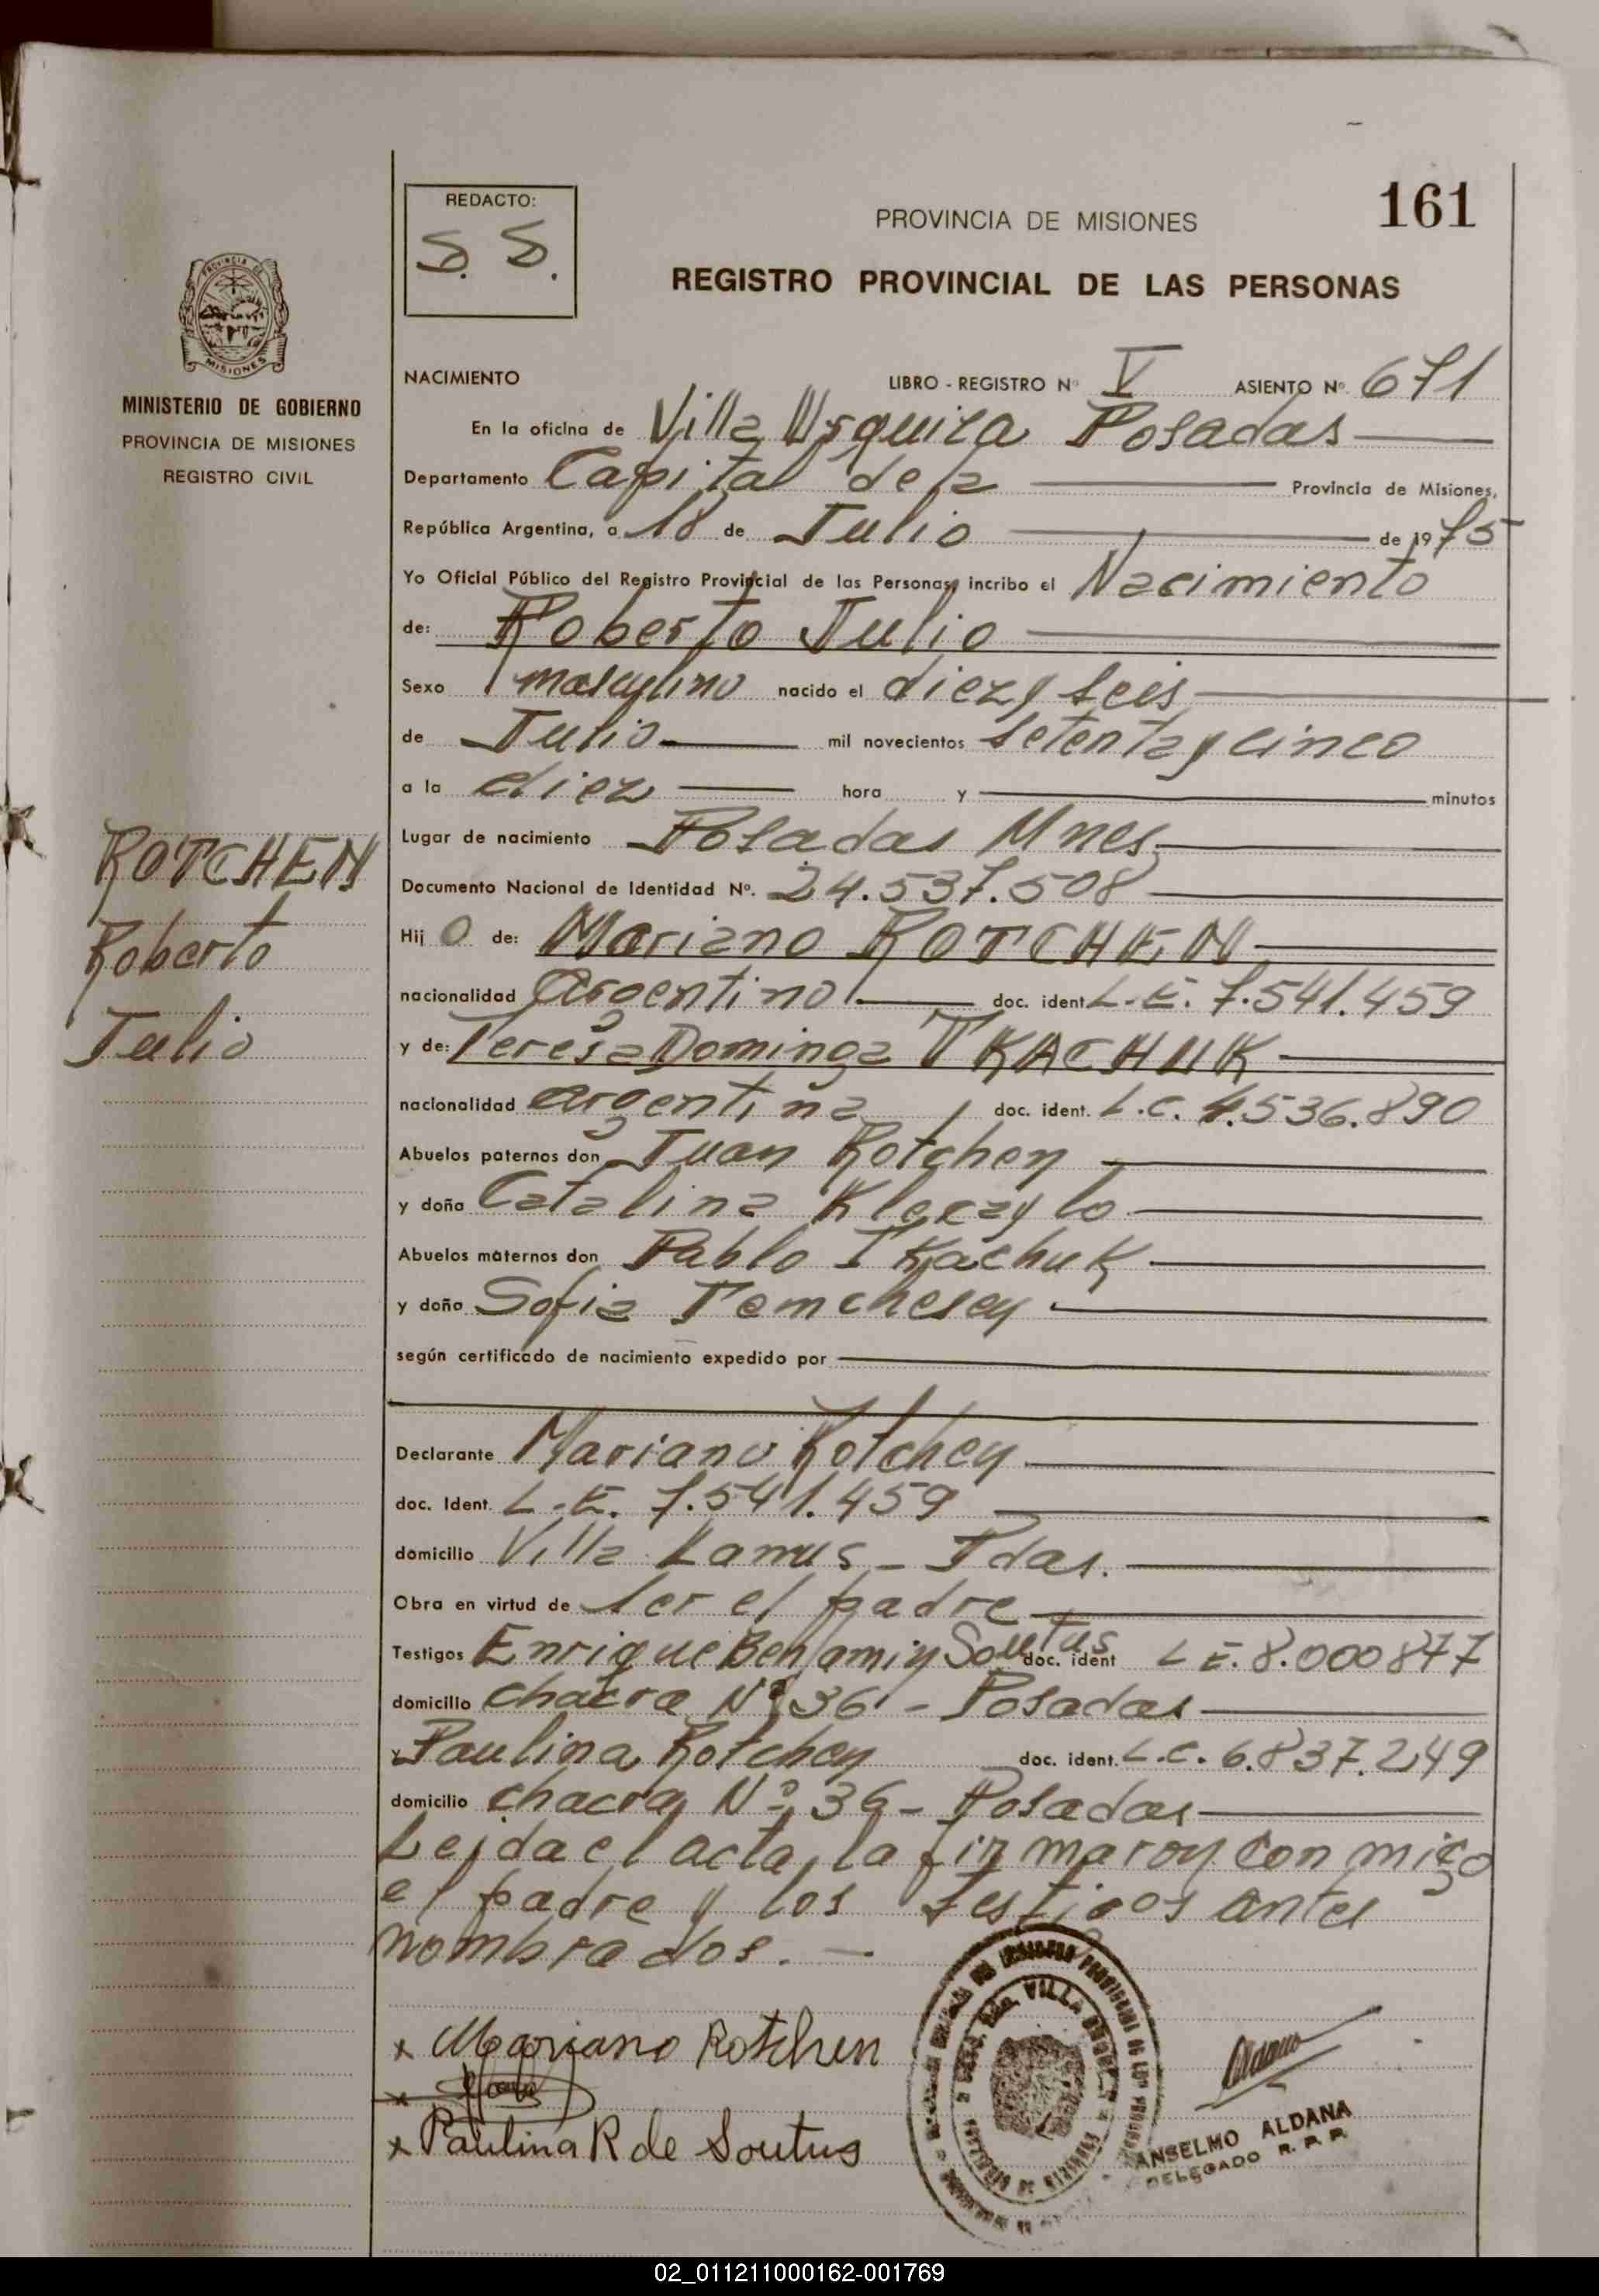 161
REDACTO:
S. S.
PROVINCIA DE MISIONES
REGISTRO PROVINCIAL DE LAS PERSONAS
PROVINCIA DE
MISIONES
MINISTERIO DE GOBIERNO
PROVINCIA DE MISIONES
REGISTRO CIVIL
NACIMIENTO LIBRO - REGISTRO Nº V ASIENTO Nº. 671
En la oficina de Villa Urquiza Posadas
Departamento Capital de la Provincia de Misiones,
República Argentina, a 18 de Julio de 1975
Yo Oficial Público del Registro Provincial de las Personas, incribo el Nacimiento
de: Roberto Julio
Sexo masculino nacido el diez y seis
de Julio mil novecientos setenta y cinco
a la diez hora y minutos
Lugar de nacimiento Posadas Mnes.
Documento Nacional de Identidad Nº. 24.537.508
Hijo de: Mariano ROTCHEN
nacionalidad Argentino doc. ident. L.E. 7.541.459
y de: Teresa Dominga TKACHUK
nacionalidad argentina doc. ident. L.C. 4.536.890
Abuelos paternos don Juan Rotchen
y doña Catalina
Abuelos maternos don Pablo Tkachuk
y doña Sofia
según certificado de nacimiento expedido por
Declarante Mariano Rotchen
doc. Ident. L.E. 7.541.459
domicilio Villa Lanus - Pdas.
Obra en virtud de ser el padre
Testigos Enrique Benjamin Soutus doc. ident L.E. 8.000877
domicilio chacra Nº 36 - Posadas
y Paulina Rotchen doc. ident. L.C. 6.837.249
domicilio chacra Nº 36 - Posadas
Leida el acta, la firmaron conmigo
el padre y los testigos antes
nombrados. -
ROTCHEN
Roberto
Julio
x Mariano Rotchen
x
x Paulina R de Soutus
VILLA
ANSELMO ALDANA
DELEGADO R. P. P.
02_011211000162-001769